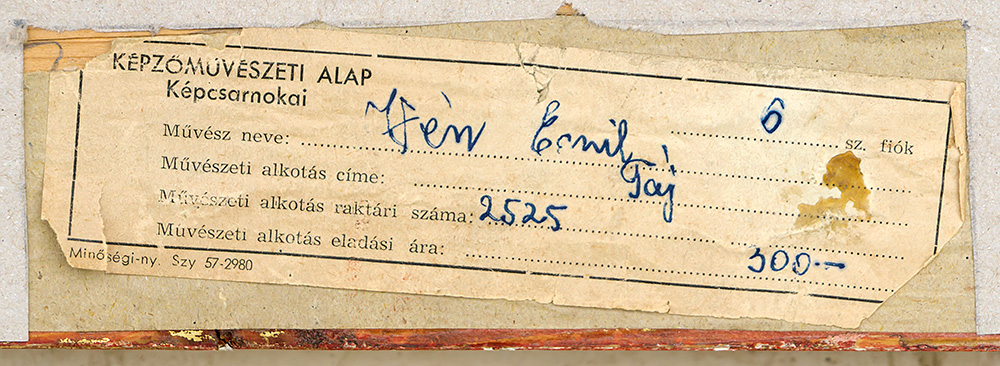 KÉPZŐMŰVÉSZETI ALAP
Képcsarnokai
6 sz. fiók
Művész neve: Emil
Művészeti alkotás címe: Táj
Művészeti alkotás raktári száma: 2525
Művészeti alkotás eladási ára: 300.—
Minőségi-ny. Szy 57-2980